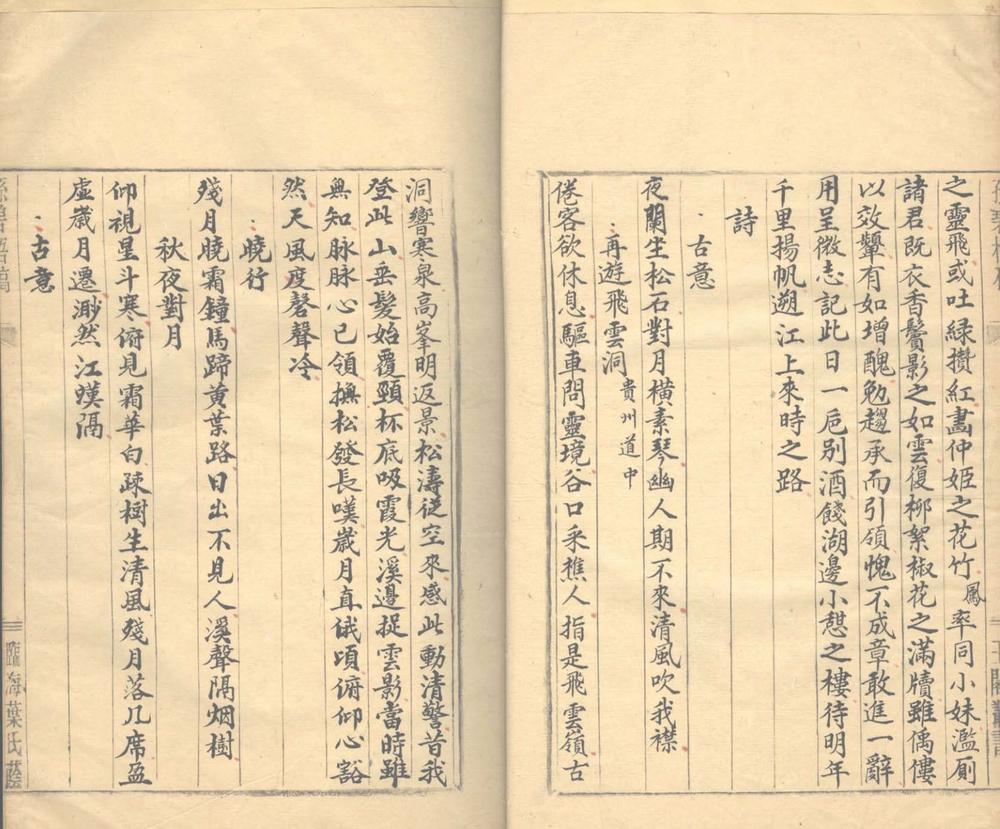 之靈飛或吐緑攢紅畵仲姬之花竹鳳率同小妹濫厠
諸君既衣香鬢影之如雲復栁絮椒花之滿牘雖傴僂
以效顰有如增醜勉趨承而引領愧不成章敢進一辭
用呈微志記此日一巵别酒餞湖邊小憩之樓待明年
千里揚帆遡江上來時之路
詩
古意
夜闌坐松石對月横素琴幽人期不來清風吹我襟
再遊飛雲洞貴州道中
倦客欲休息驅車問靈境谷口采樵人指是飛雲嶺古
洞響寒泉高峯明返景松濤從空來感此動清警昔我
登此山垂髮始覆頸杯底吸霞光溪邊捉雲影當時雖
無知脉脉心已領撫松發長嘆嵗月直俄頃俯仰心豁
然天風度磬聲冷
曉行
殘月曉霜鐘馬蹄黄葉路日出不見人溪聲隔烟樹
秋夜對月
仰視星斗寒俯見霜華白疎樹生清風殘月落几席盈
虛嵗月遷渺然江漢隔
古意
三
蔭